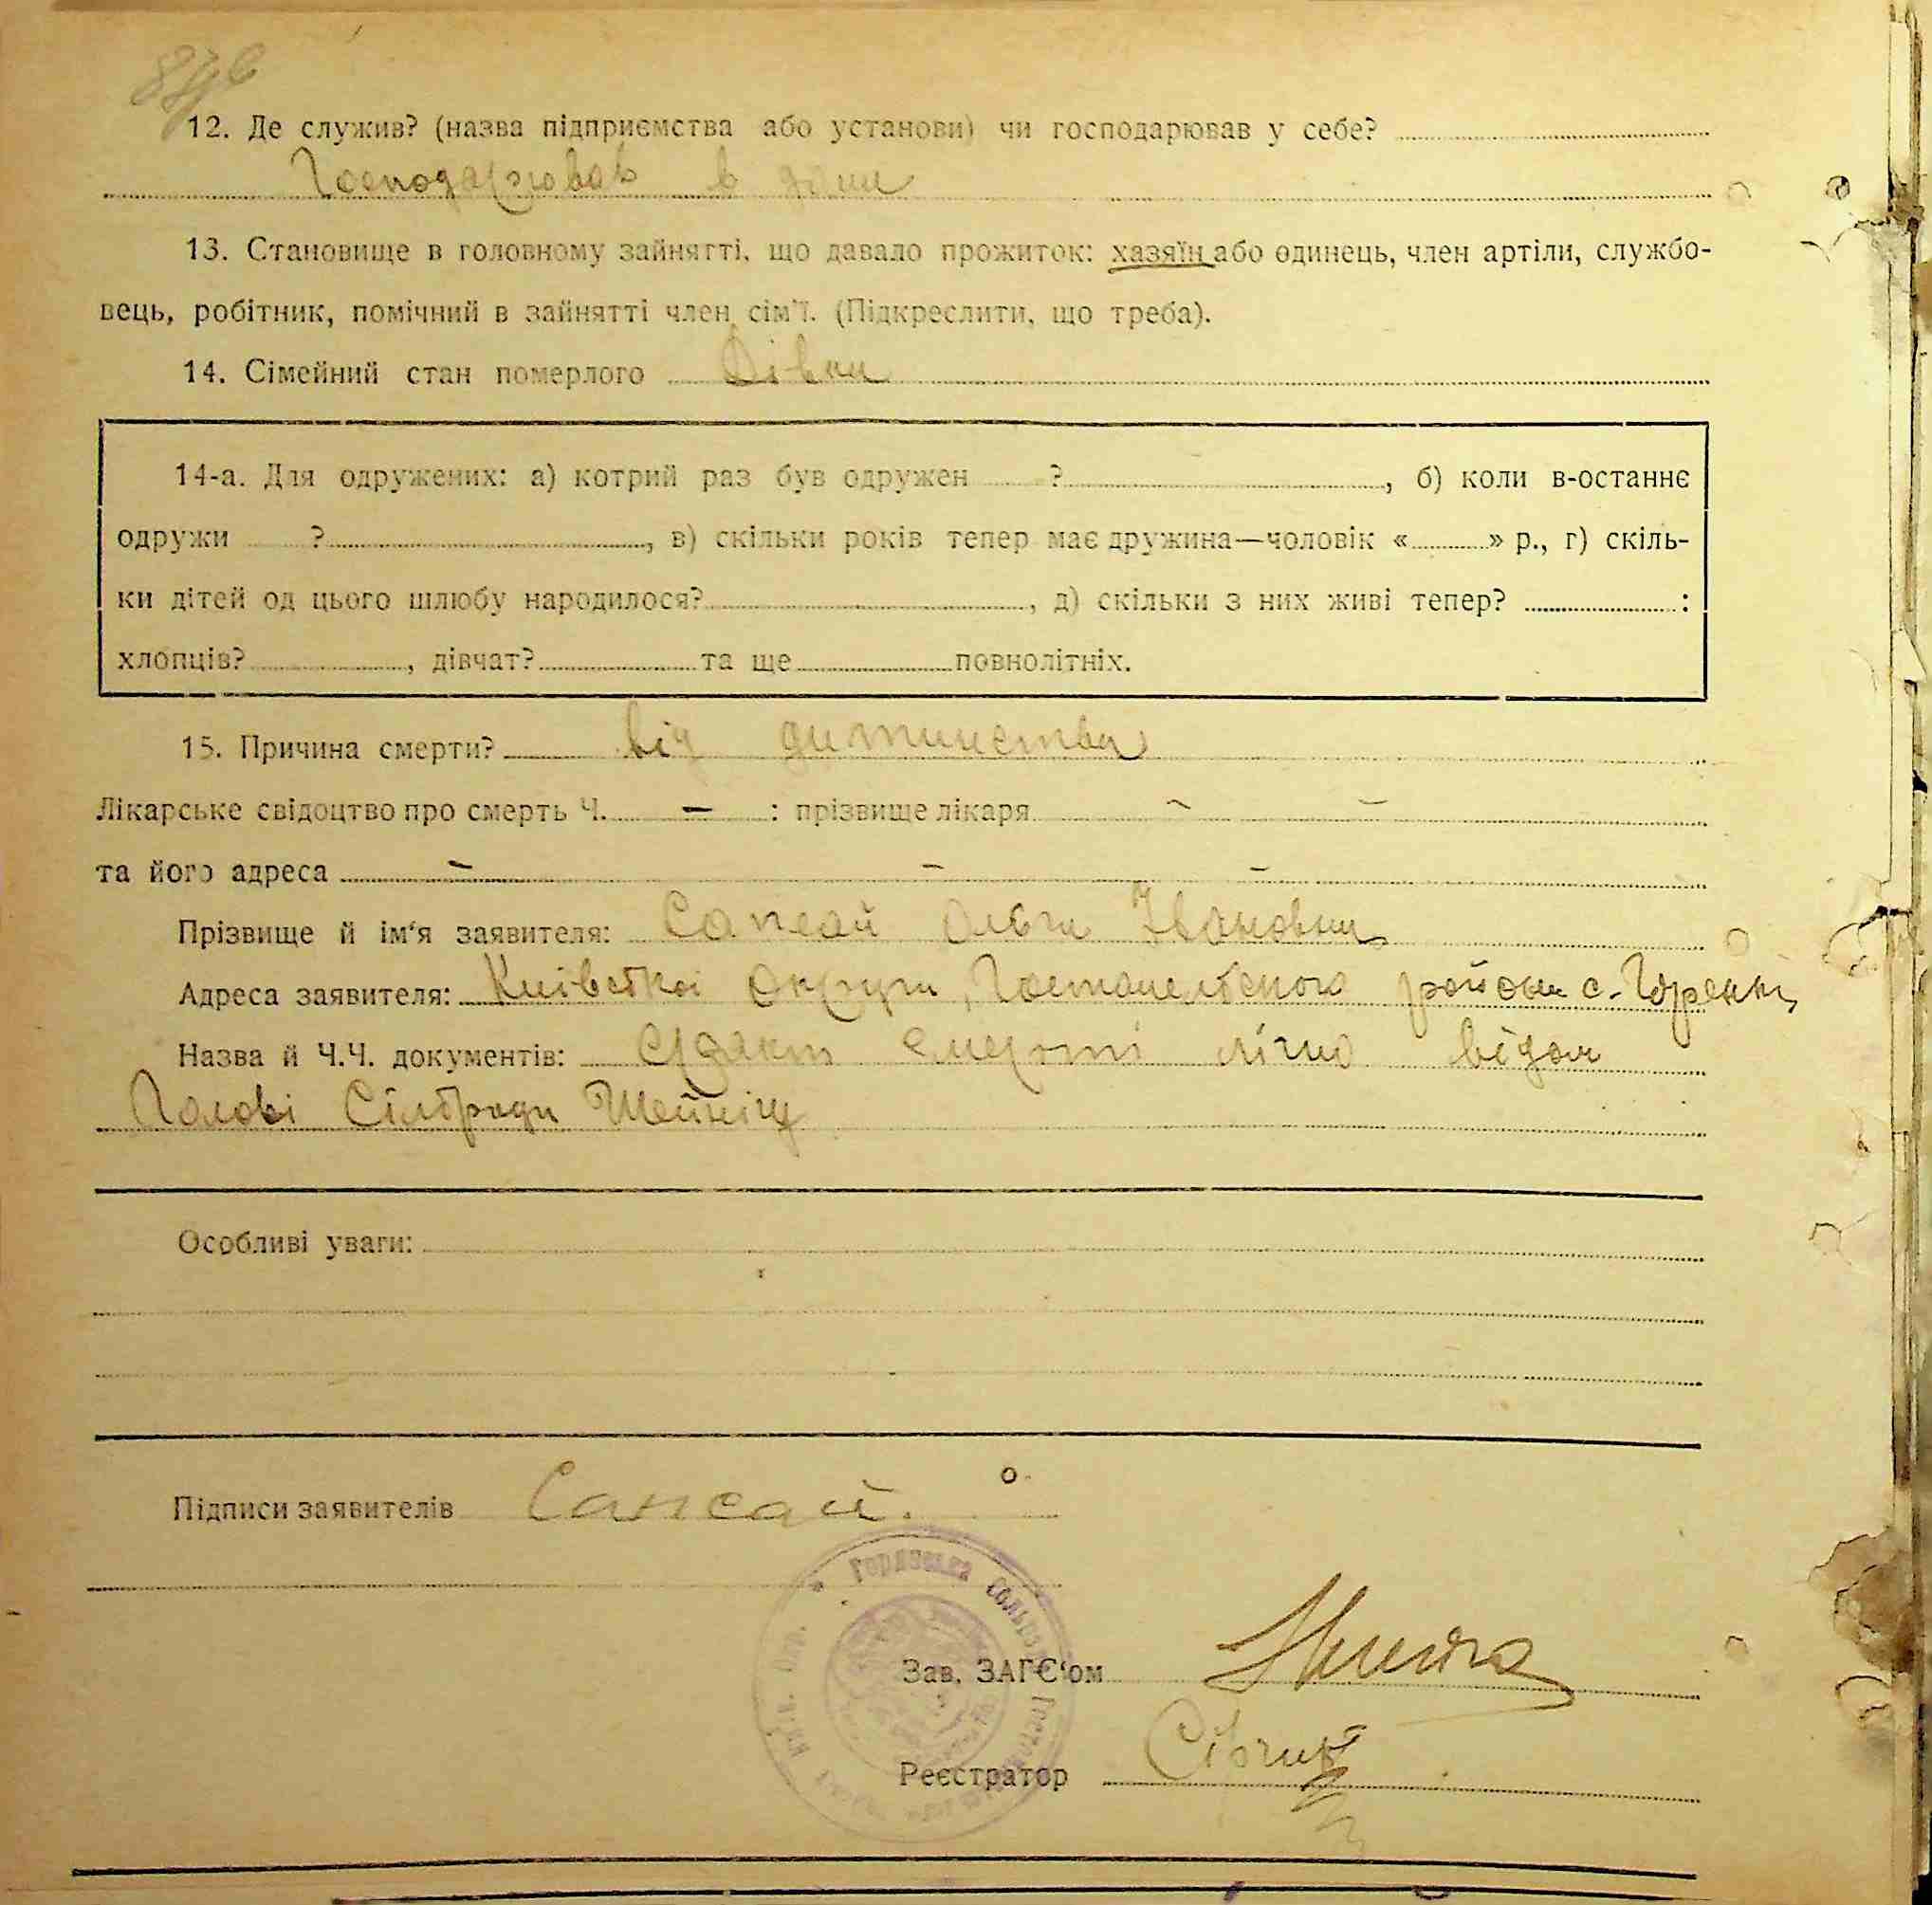 12. Де служив? (назва підприємства або установи) чи господарював у себе?
Господарював в доми
13. Становище в головному зайнятті, що давало прожиток: хазяїн або одинець, член артіли, службо-
вець, робітник, помічний в зайнятті член сім'ї. (Підкреслити, що треба).
14. Сімейний стан померлого
14-а. Для одружених: а) котрий раз був одружен ?, б) коли в-останнє
одружи ?, в) скільки років тепер має дружина—чоловік « » р., г) скіль-
ки дітей од цього шлюбу народилося?, д) скільки з них живі тепер? :
хлопців?, дівчат? та ще повнолітніх.
15. Причина смерти? від дитинства
Лікарське свідоцтво про смерть Ч. — : прізвище лікаря — —
та його адреса — — —
Прізвище й ім'я заявителя: Ольги Івановни
Адреса заявителя: Київської Округи, Гостомельського району с. Горенки
Назва й Ч.Ч. документів: смерті лічно відом
Голові Сільради
Особливі уваги:
Підписи заявителів Сапсай. О.
Горинська Сільрада
Зав. ЗАГС'ом
Реєстратор